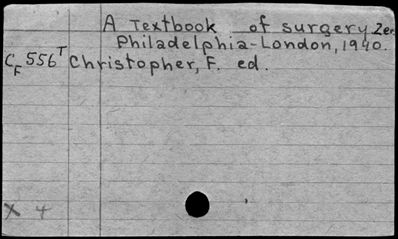 A Textbook of surgery 2ed.
Philadelphia-London, 1940.
CF 556T Christopher, F. ed.
X 4